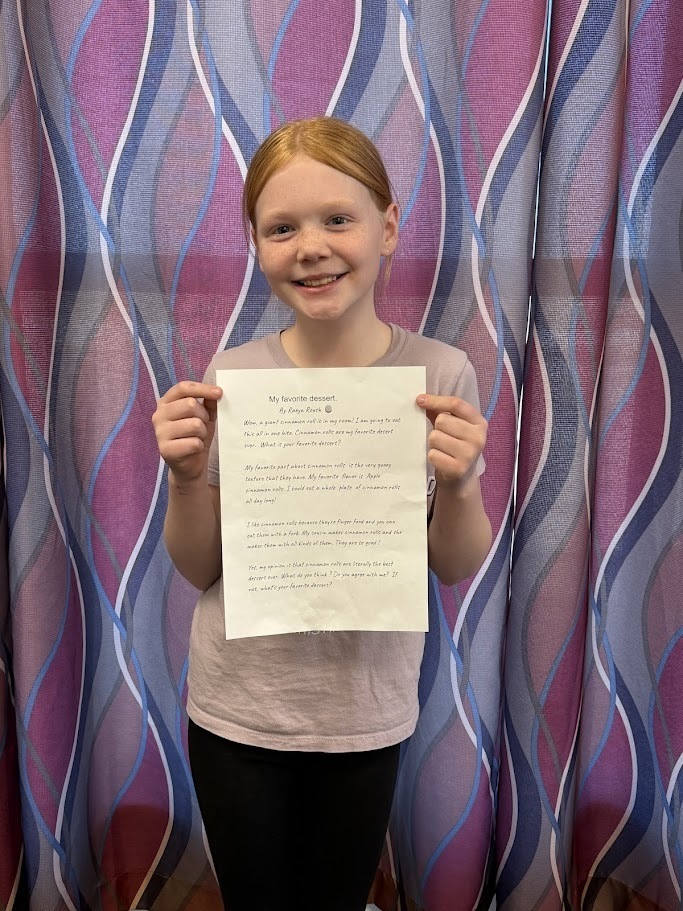 My favorite dessert.
By Raeya Roush
Wow, a giant cinnamon roll is in my room! I am going to eat
this all in one bite. Cinnamon rolls are my favorite desert
ever. What is your favorite dessert?
My favorite part about cinnamon rolls is the very gooey
texture that they have. My favorite flavor is Apple
cinnamon rolls. I could eat a whole plate of cinnamon rolls
all day long!
I like cinnamon rolls because they're finger food and you can
eat them with a fork. My cousin makes cinnamon rolls and she
makes them with all kinds of them. They are so good !
Yes, my opinion is that cinnamon rolls are literally the best
dessert ever. What do you think ? Do you agree with me? If
not, what's your favorite dessert?